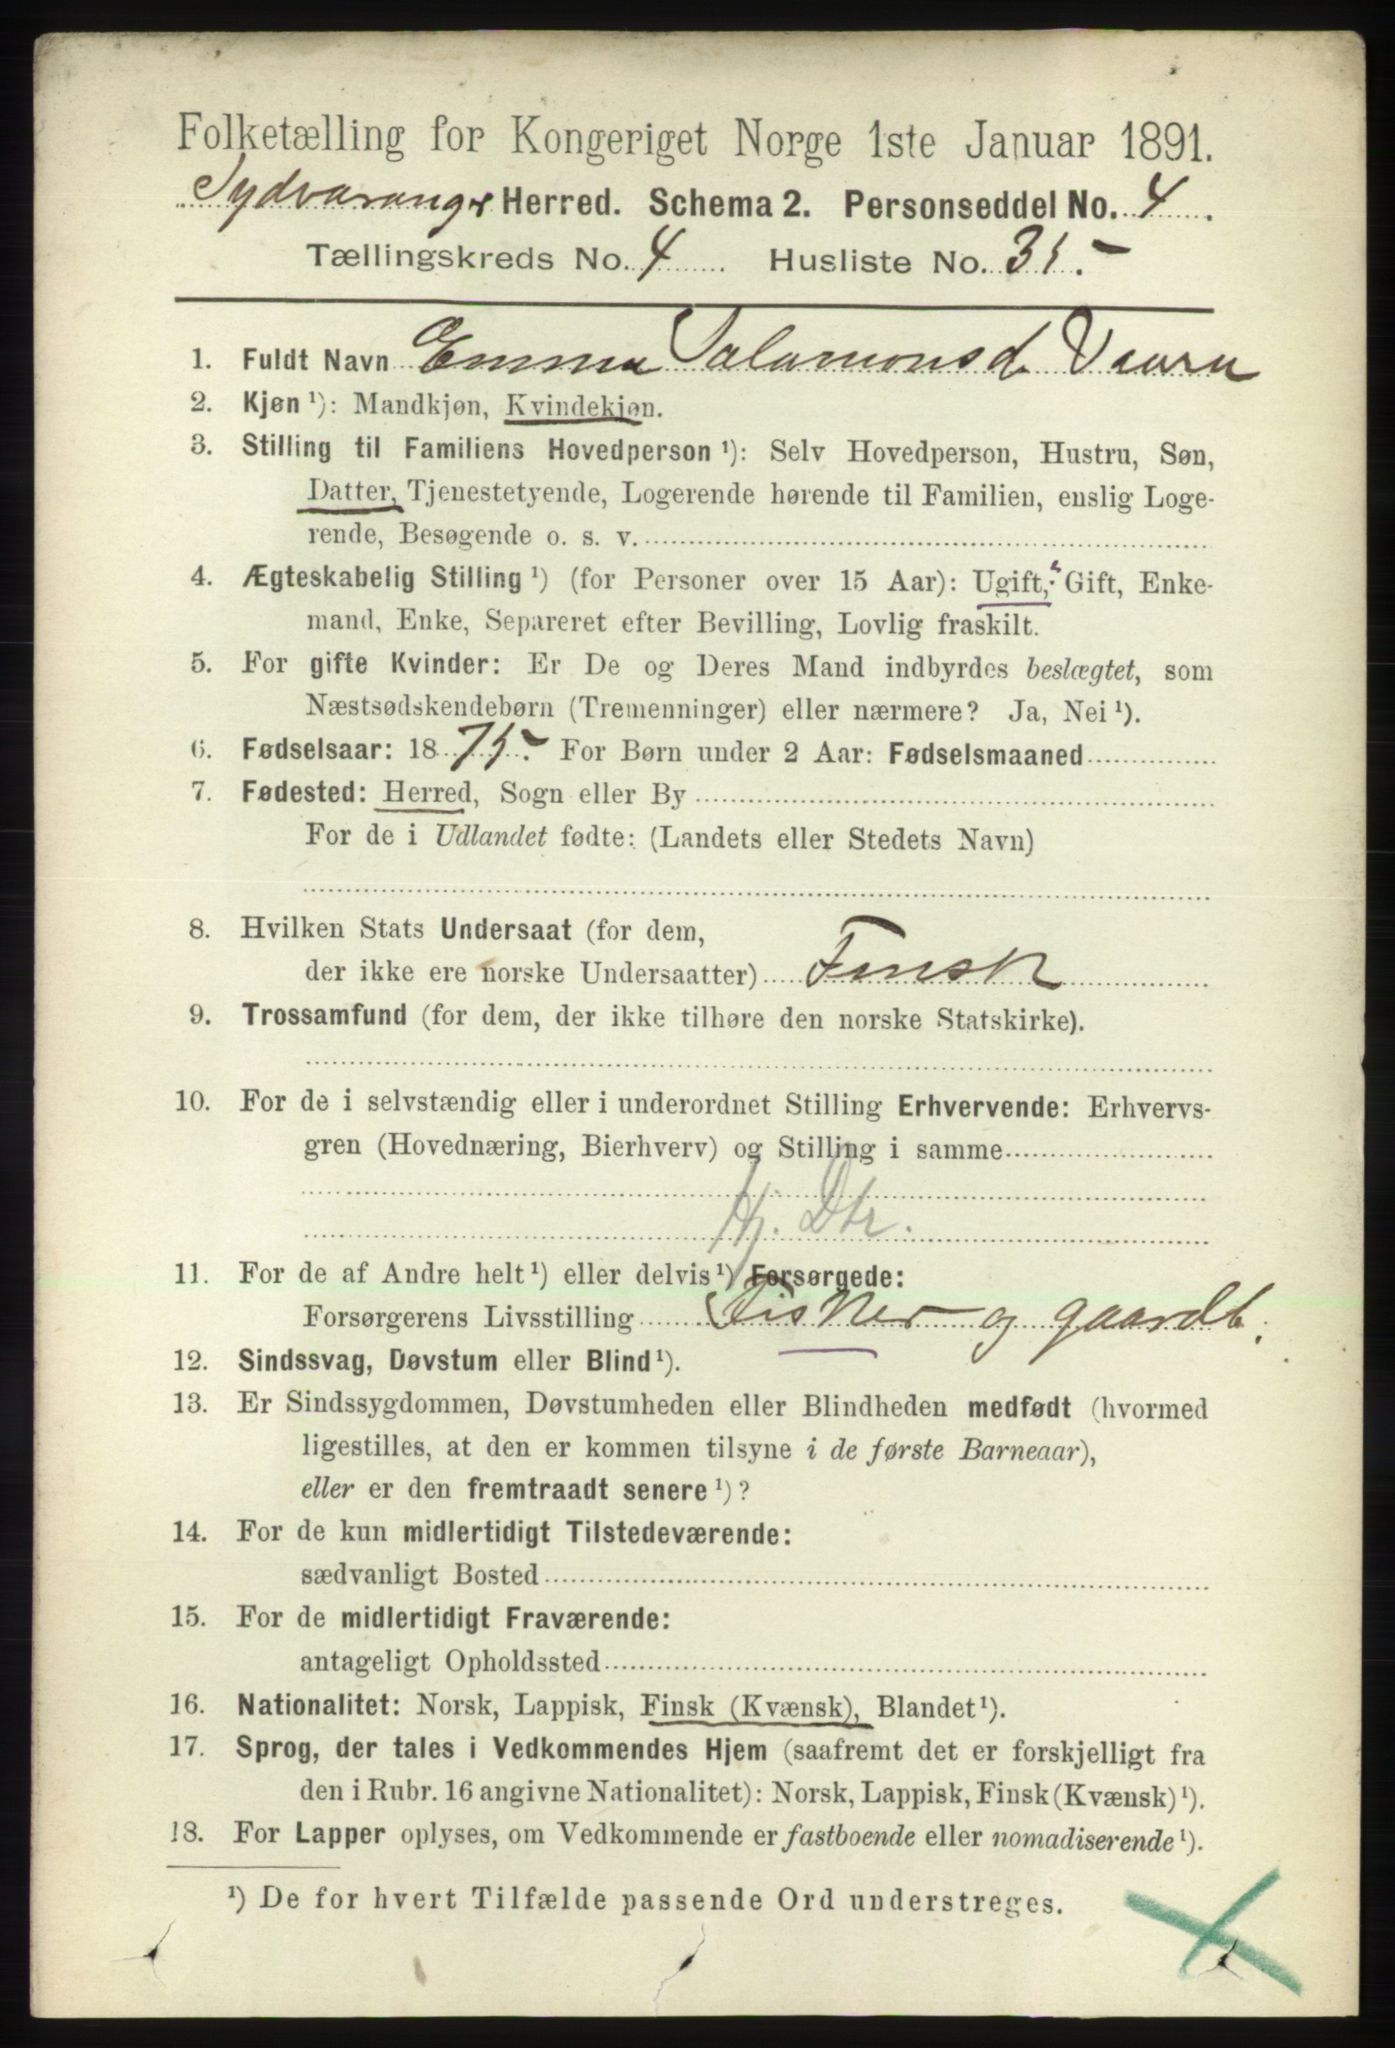 Folketælling for Kongeriget Norge 1ste Januar 1891.
Sydvaranger Herred. Schema 2. Personseddel No. 4.
Tællingskreds No. 4 Husliste No. 35.
1. Fuldt Navn Emma Salamonsd Vaara
2. Kjøn ¹): Mandkjøn, Kvindekjøn.
3. Stilling til Familiens Hovedperson ¹): Selv Hovedperson, Hustru, Søn,
Datter, Tjenestetyende, Logerende hørende til Familien, enslig Loge-
rende, Besøgende o. s. v.
4. Ægteskabelig Stilling ¹) (for Personer over 15 Aar): Ugift, Gift, Enke-
mand, Enke, Separeret efter Bevilling, Lovlig fraskilt.
5. For gifte Kvinder: Er De og Deres Mand indbyrdes beslægtet, som
Næstsødskendebørn (Tremenninger) eller nærmere? Ja, Nei ¹).
6. Fødselsaar: 1875. For Børn under 2 Aar: Fødselsmaaned
7. Fødested: Herred, Sogn eller By
For de i Udlandet fødte: (Landets eller Stedets Navn)
8. Hvilken Stats Undersaat (for dem,
der ikke ere norske Undersaatter) Finsk
9. Trossamfund (for dem, der ikke tilhøre den norske Statskirke).
10. For de i selvstændig eller i underordnet Stilling Erhvervende: Erhvervs-
gren (Hovednæring, Bierhverv) og Stilling i samme
Hj. Dtr.
11. For de af Andre helt ¹) eller delvis ¹) Forsørgede:
Forsørgerens Livsstilling Fisker og gaardb.
12. Sindssvag, Døvstum eller Blind ¹).
13. Er Sindssygdommen, Døvstumheden eller Blindheden medfødt (hvormed
ligestilles, at den er kommen tilsyne i de første Barneaar),
eller er den fremtraadt senere ¹)?
14. For de kun midlertidigt Tilstedeværende:
sædvanligt Bosted
15. For de midlertidigt Fraværende:
antageligt Opholdssted
16. Nationalitet: Norsk, Lappisk, Finsk (Kvænsk), Blandet ¹).
17. Sprog, der tales i Vedkommendes Hjem (saafremt det er forskjelligt fra
den i Rubr. 16 angivne Nationalitet): Norsk, Lappisk, Finsk (Kvænsk) ¹).
18. For Lapper oplyses, om Vedkommende er fastboende eller nomadiserende ¹).
¹) De for hvert Tilfælde passende Ord understreges.